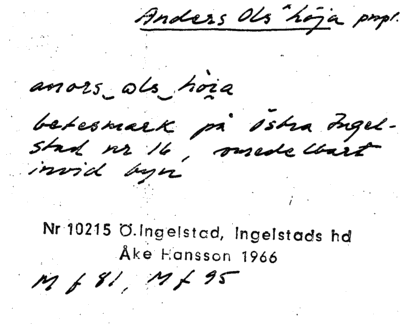 Anders Ols höja
anørs_ols_höja
betesmark på östra Ingel-
stad nr 16, omedelbart
invid byn
Nr 10215 Ö.Ingelstad, Ingelstads hd
Åke Hansson 1966
M f 81, M f 95